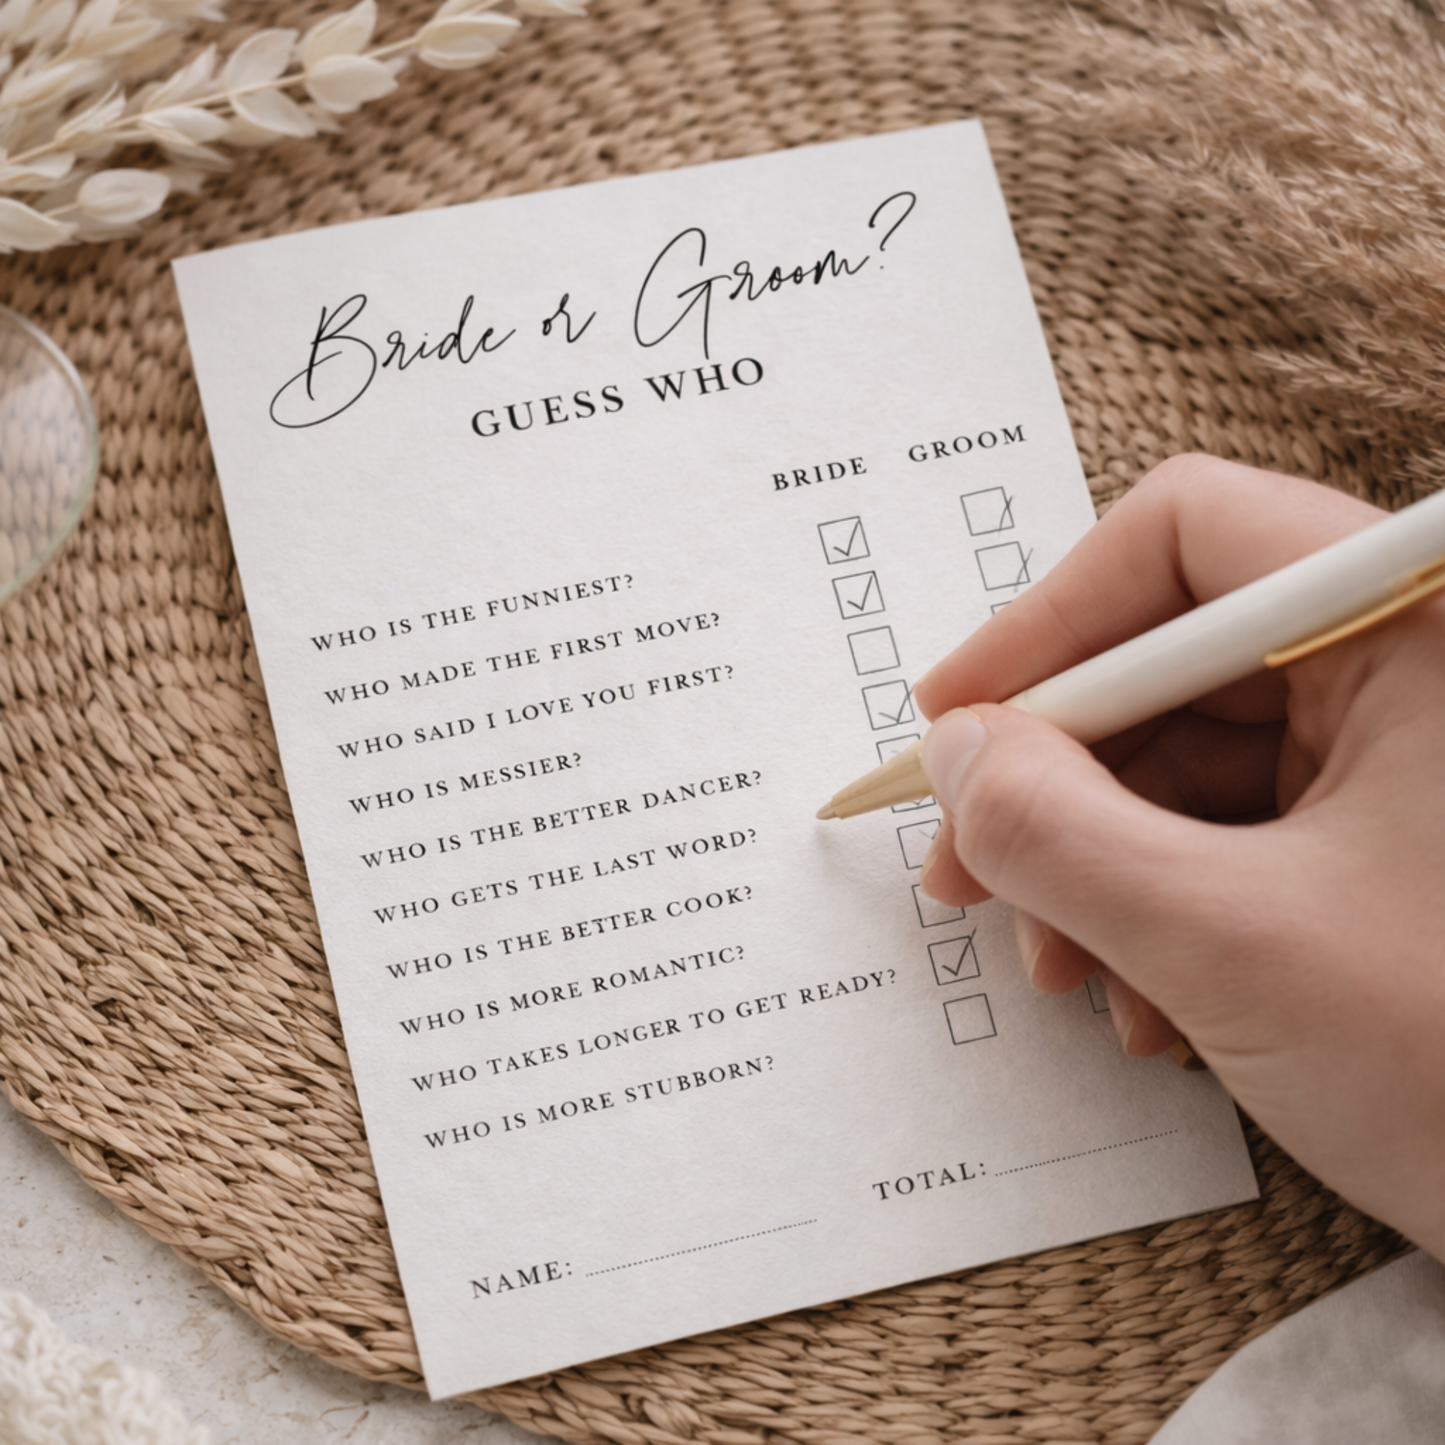 Bride or Groom?
GUESS WHO
BRIDE GROOM
WHO IS THE FUNNIEST?
WHO MADE THE FIRST MOVE?
WHO SAID I LOVE YOU FIRST?
WHO IS MESSIER?
WHO IS THE BETTER DANCER?
WHO GETS THE LAST WORD?
WHO IS THE BETTER COOK?
WHO IS MORE ROMANTIC?
WHO TAKES LONGER TO GET READY?
WHO IS MORE STUBBORN?
TOTAL:
NAME: